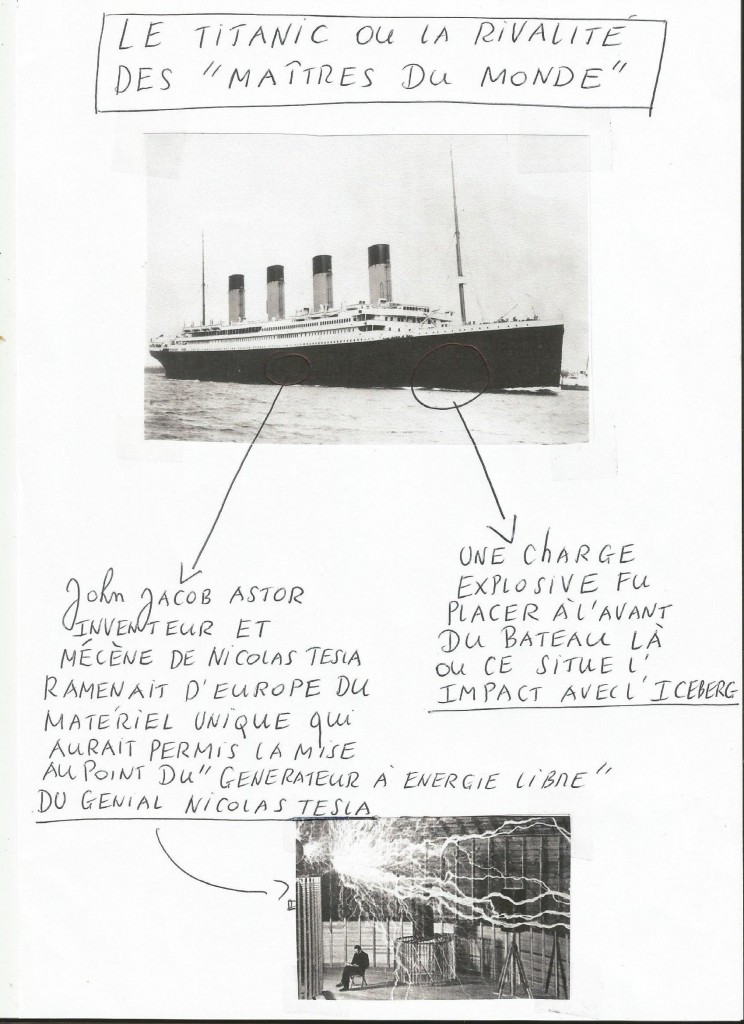 LE TITANIC OU LA RIVALITÉ
DES "MAÎTRES DU MONDE"
John JACOB ASTOR
INVENTEUR ET
MÉCÈNE DE NICOLAS TESLA
RAMENAIT D'EUROPE DU
MATÉRIEL UNIQUE QUI
AURAIT PERMIS LA MISE
AU POINT DU "GENERATEUR À ENERGIE LIBRE"
DU GENIAL NICOLAS TESLA
UNE CHARGE
EXPLOSIVE FU
PLACER À L'AVANT
DU BATEAU LÀ
OU CE SITUE L'
IMPACT AVEC L'ICEBERG